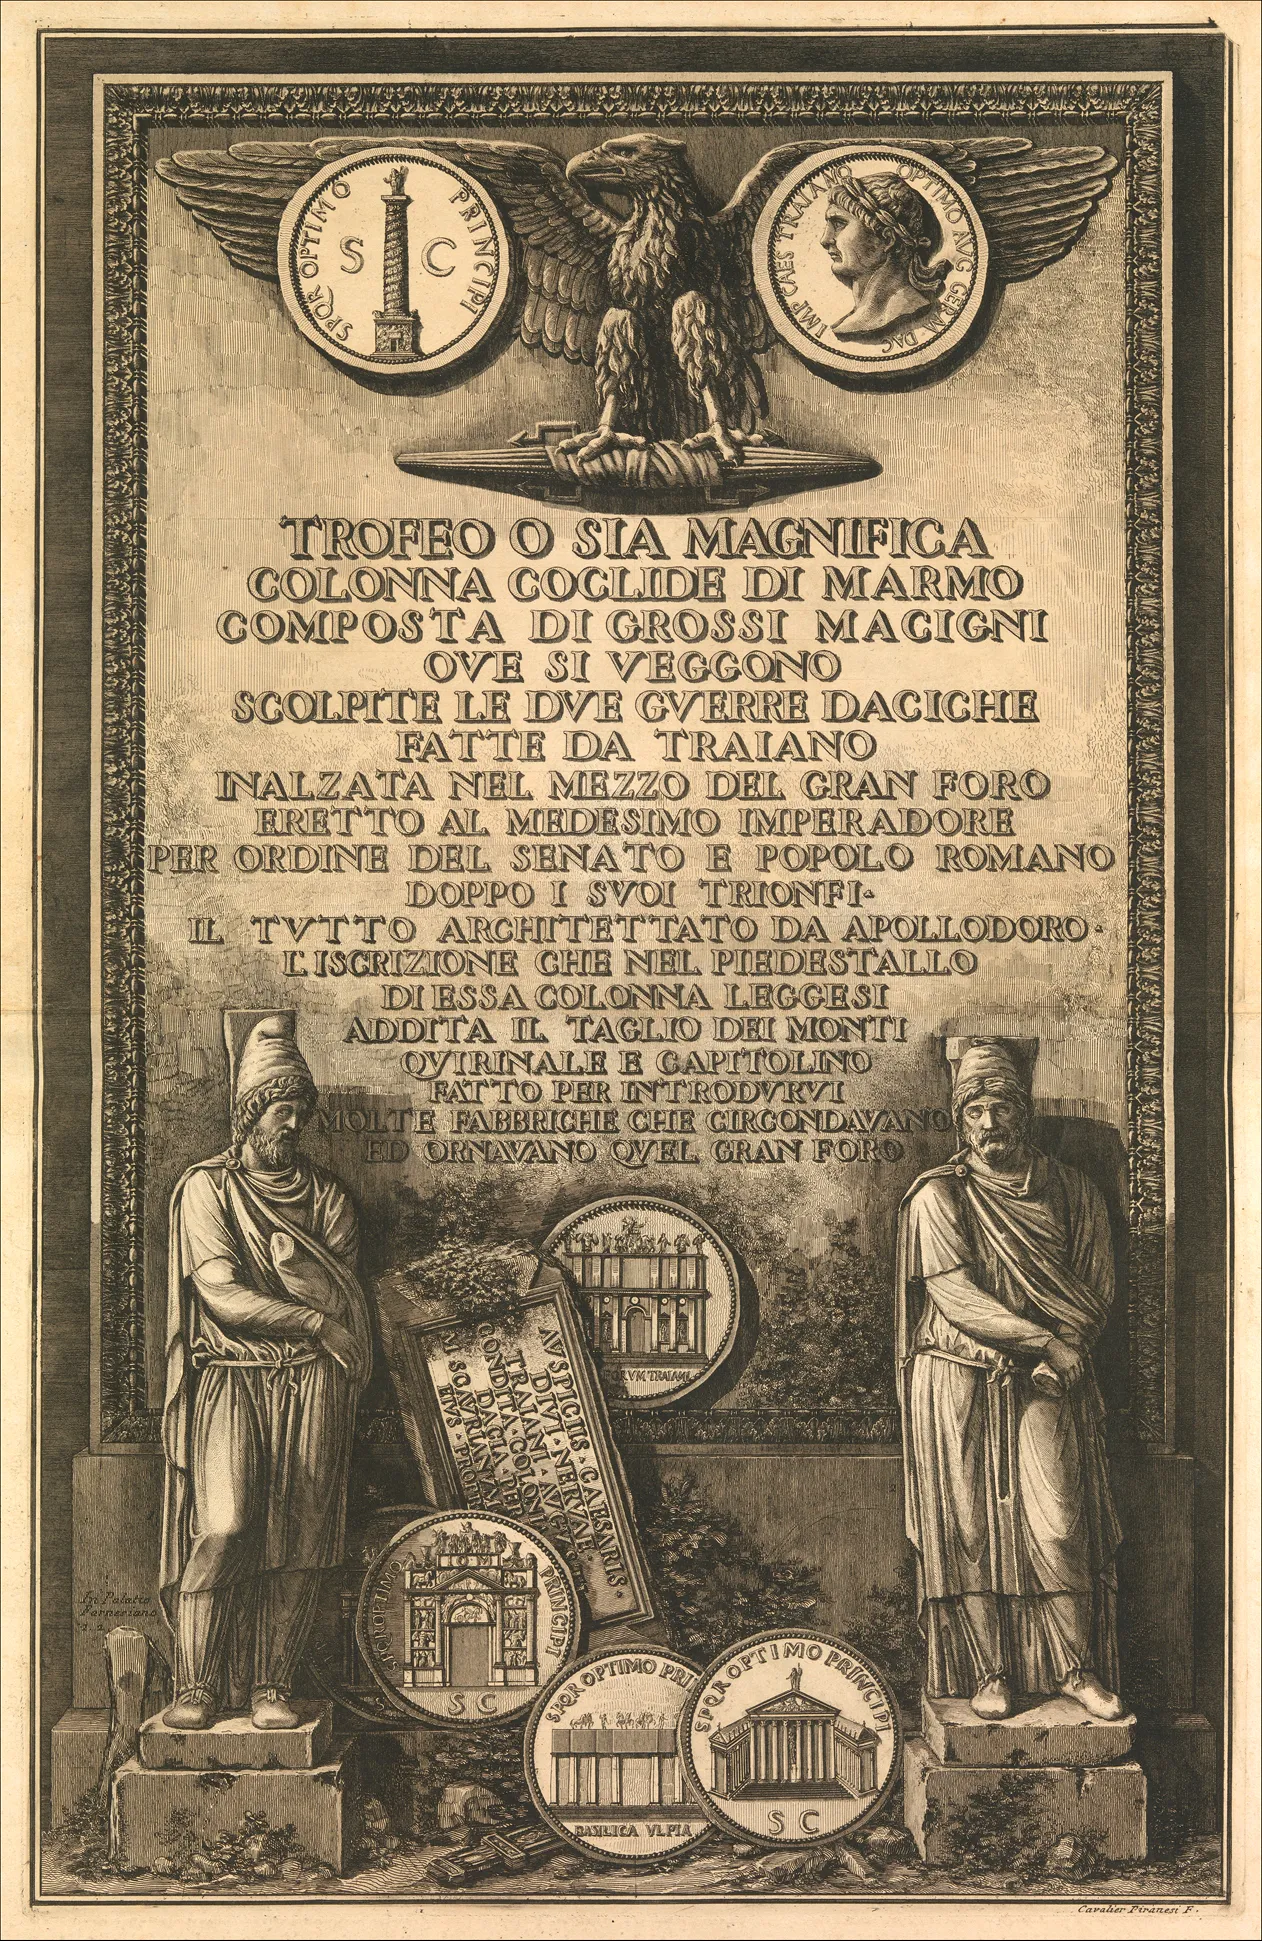 SPQR OPTIMO PRINCIPI
S C
IMP CAES TRAIANO OPTIMO AVG GERM DAC
TROFEO O SIA MAGNIFICA
COLONNA COCLIDE DI MARMO
COMPOSTA DI GROSSI MACIGNI
OVE SI VEGGONO
SCOLPITE LE DVE GVERRE DACICHE
FATTE DA TRAIANO
INALZATA NEL MEZZO DEL GRAN FORO
ERETTO AL MEDESIMO IMPERADORE
PER ORDINE DEL SENATO E POPOLO ROMANO
DOPPO I SVOI TRIONFI·
IL TVTTO ARCHITETTATO DA APOLLODORO·
L'ISCRIZIONE CHE NEL PIEDESTALLO
DI ESSA COLONNA LEGGESI
ADDITA IL TAGLIO DEI MONTI
QVIRINALE E CAPITOLINO
FATTO PER INTRODVRVI
MOLTE FABBRICHE CHE CIRCONDAVANO
ED ORNAVANO QVEL GRAN FORO
FORVM TRAIANI
AVSPICIIS · CAESARIS ·
DIVI · NERVAE ·
TRAIANI · AVG
CONDITA · COLONI
DACIA · PER
M SCAVRIANVM
EIVS · PROP
SPQR OPTIMO PRINCIPI
IOM
S C
In Palatio
Farnesiano
1 2
SPQR OPTIMO PRI
BASILICA VLPIA
SPQR OPTIMO PRINCIPI
S C
Cavalier Piranesi F.